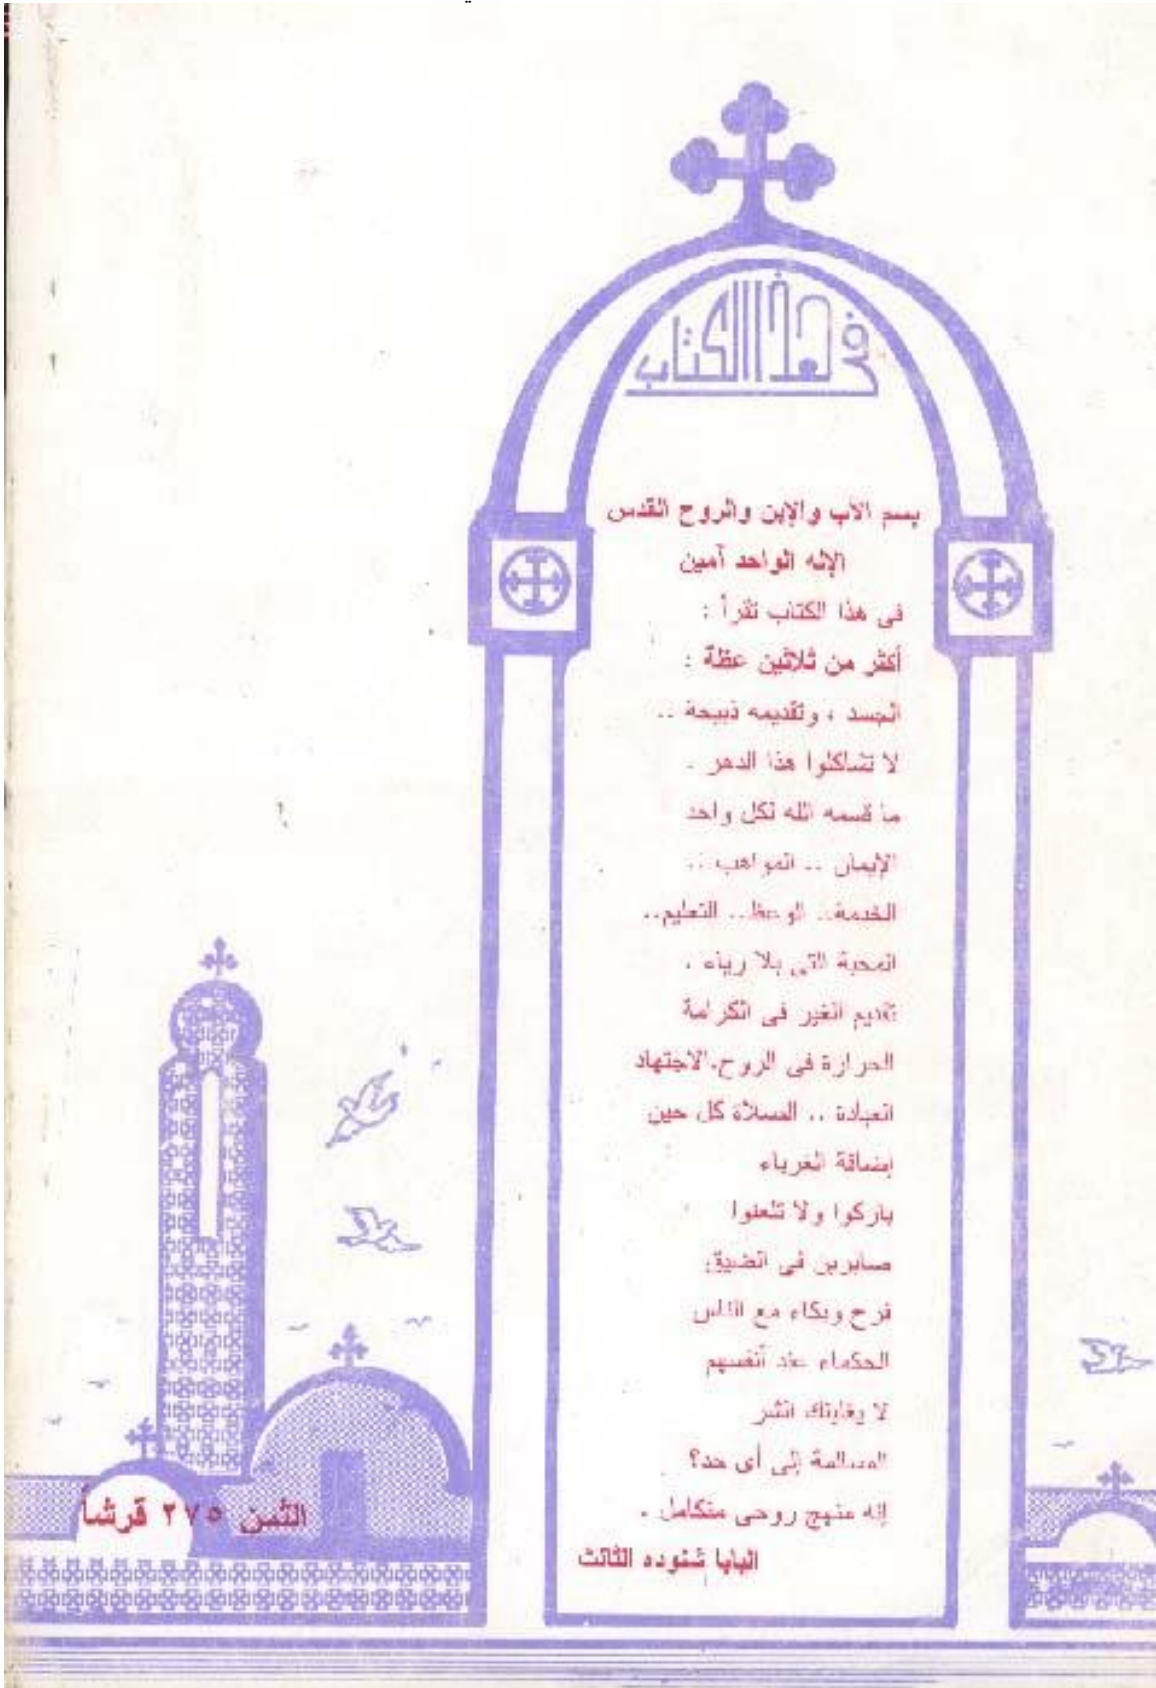 فى هذا الكتاب
بسم الآب والإبن والروح القدس
الإله الواحد آمين
فى هذا الكتاب تقرأ :
أكثر من ثلاثين عظة :
الجسد ، وتقديمه ذبيحة ..
لا تشاكلوا هذا الدهر .
ما قسمه الله لكل واحد
الإيمان .. المواهب ..
الخدمة.. الوعظ.. التعليم..
المحبة التى بلا رياء .
تقديم الغير فى الكرامة
الحرارة فى الروح.الاجتهاد
العبادة .. الصلاة كل حين
إضافة الغرباء
باركوا ولا تلعنوا
صابرين فى الضيق
فرح وبكاء مع الناس
الحكماء عند أنفسهم
لا يغلبنك الشر
المسالمة إلى أى حد؟
إنه منهج روحى متكامل .
البابا شنوده الثالث
الثمن ٢٧٥ قرشاً